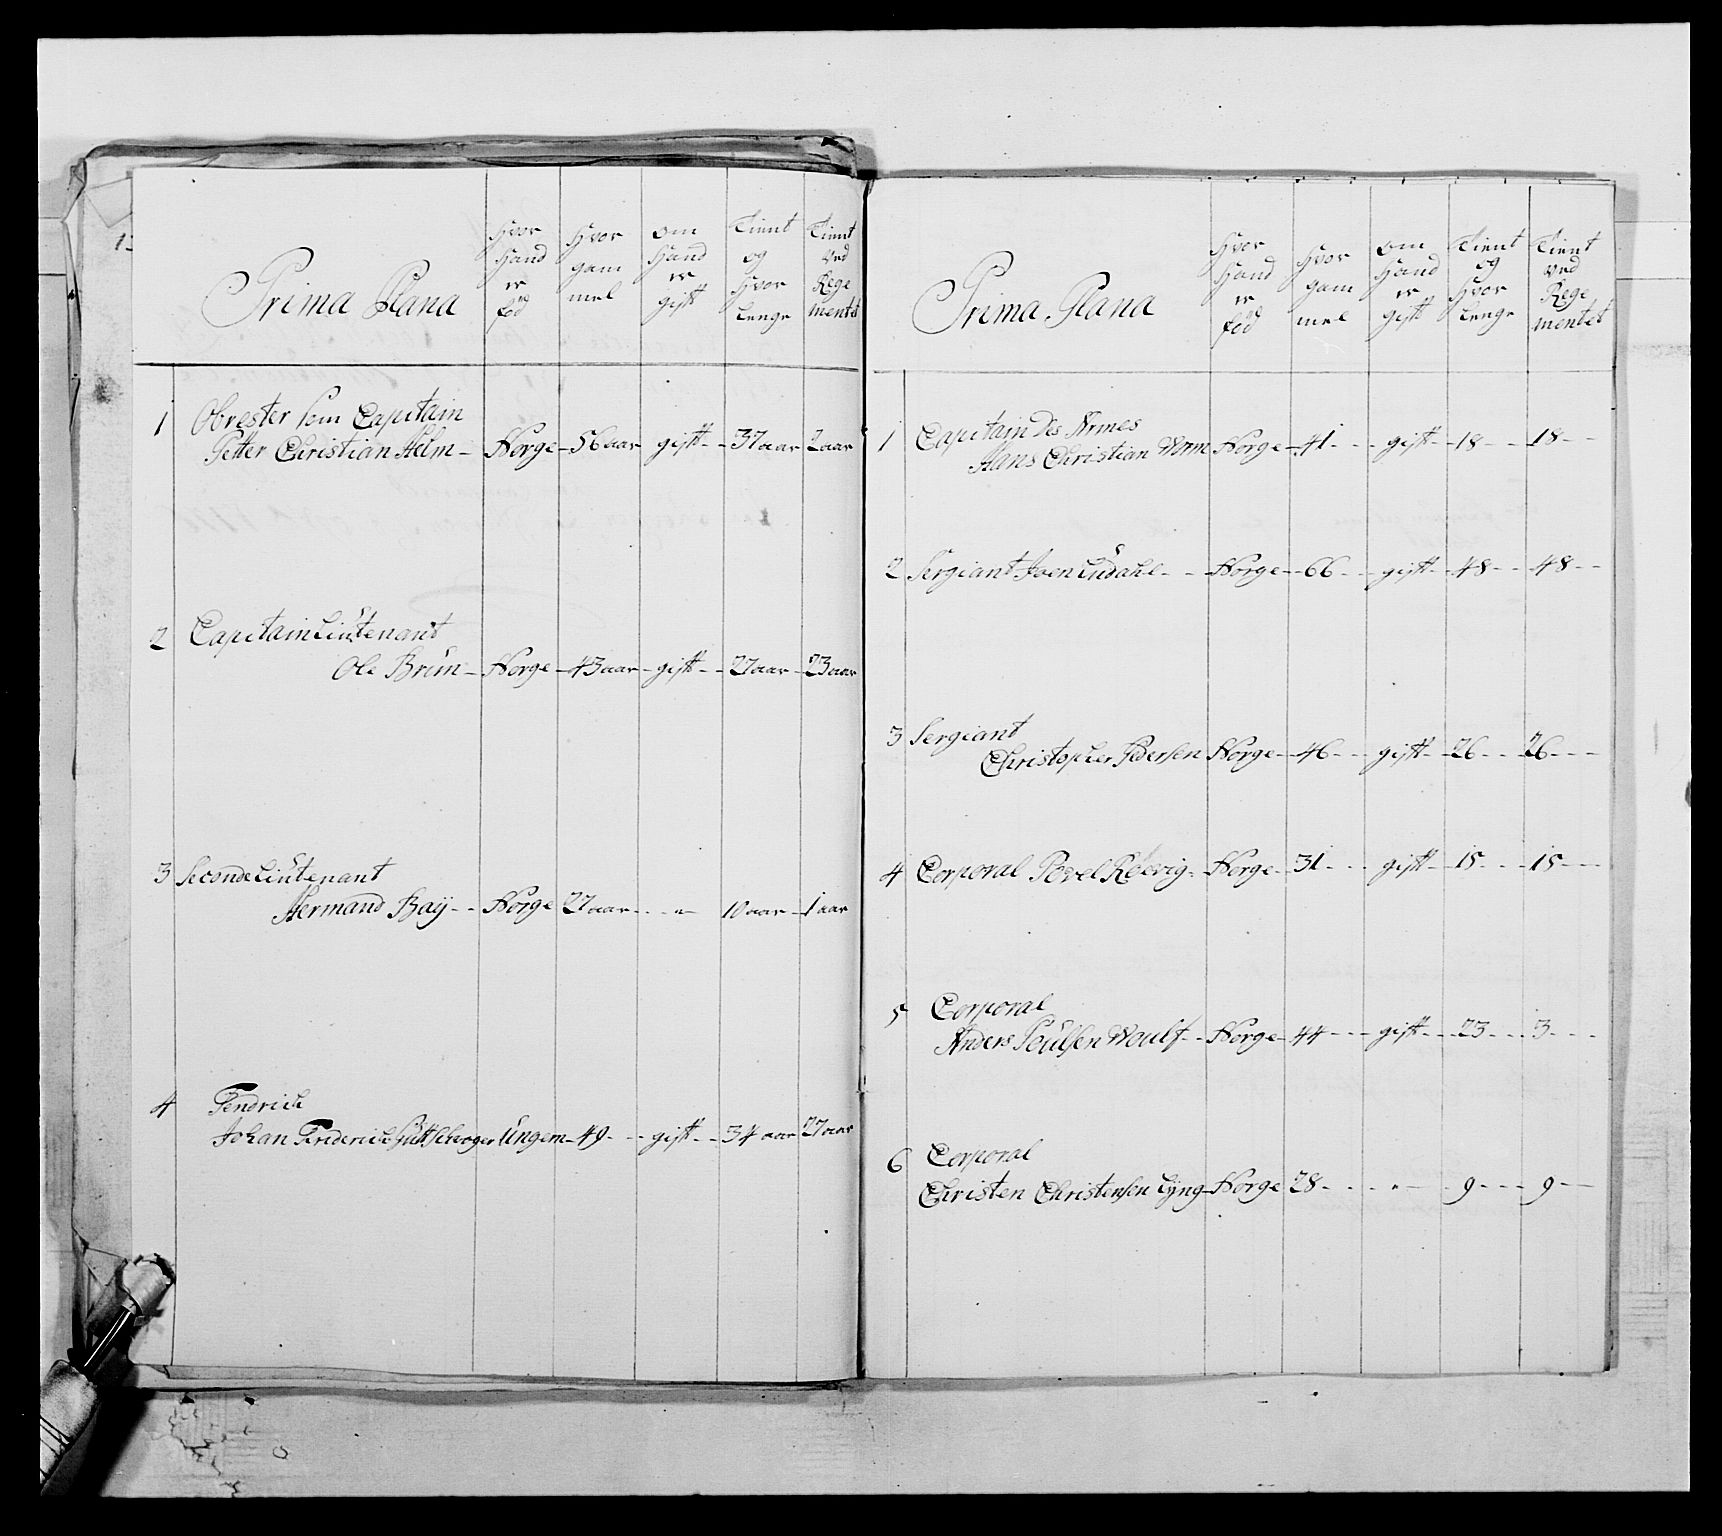 Prima Plana
Hvor Hand er föd
Hvor gam mel
om Hand er gift
Tient og Hvor Lenge
Tient ved Rege mentet
1 Obrester som Capitain
Petter Christian Helm - Norge - 56 aar gift - 37 aar 2 aar
2 Capitain Liutenant
Ole Brun - Norge - 43 aar - gift - 27 aar - 23 aar
3 Seconde Liutenant
Hermand Baÿ - Norge 27 aar - " - 10 aar - 1 aar
4 Fendrich
Johan Friderich Ungern - 49 - gift - 34 aar 27 aar
Prima Plana
Hvor Hand er föd
Hvor gam mel
om Hand er gift
Tient og Hvor Lenge
Tient ved Rege mentet
1 Capitain Des Armes
Hans Christian Worm Norge - 41 - gift - 18 - 18
2 Sergiant Joen Lŭdahl - Norge - 66 - gift - 48 - 48
3 Sergiant
Christopher Pedersen Norge - 46 - gift - 26 - 26
4 Corporal Povel Röevig - Norge - 31 - gift - 15 - 15
5 Corporal
Anders Poŭlsen Woulf - Norge - 44 - gift - 23 - 3
6 Corporal
Christen Christensen Lÿng - Norge 28 - " - 9 - 9